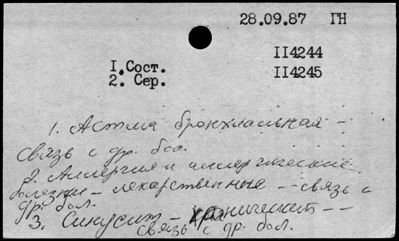 28.09.87 ГН
II4244
1. Сост.
II4245
2. Сер.
1. Астма бронхиальная –
связь с др. бол.
2. Аллергия и аллергические
болезни – лекарственные – связь с
др. бол.
3. Синусит – хронический –
связь с др. бол.